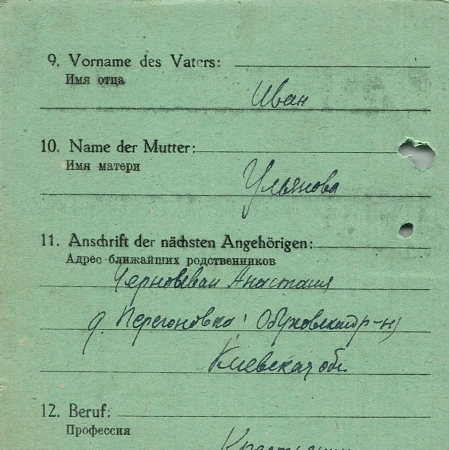 9. Vorname des Vaters:
Имя отца
Иван
10. Name der Mutter:
Имя матери
Ульянова
11. Anschrift der nächsten Angehörigen:
Адрес ближайших родственников
Анастасия
д. Перегоновка! Обуховский р-н)
Киевская обл.
12. Beruf:
Профессия